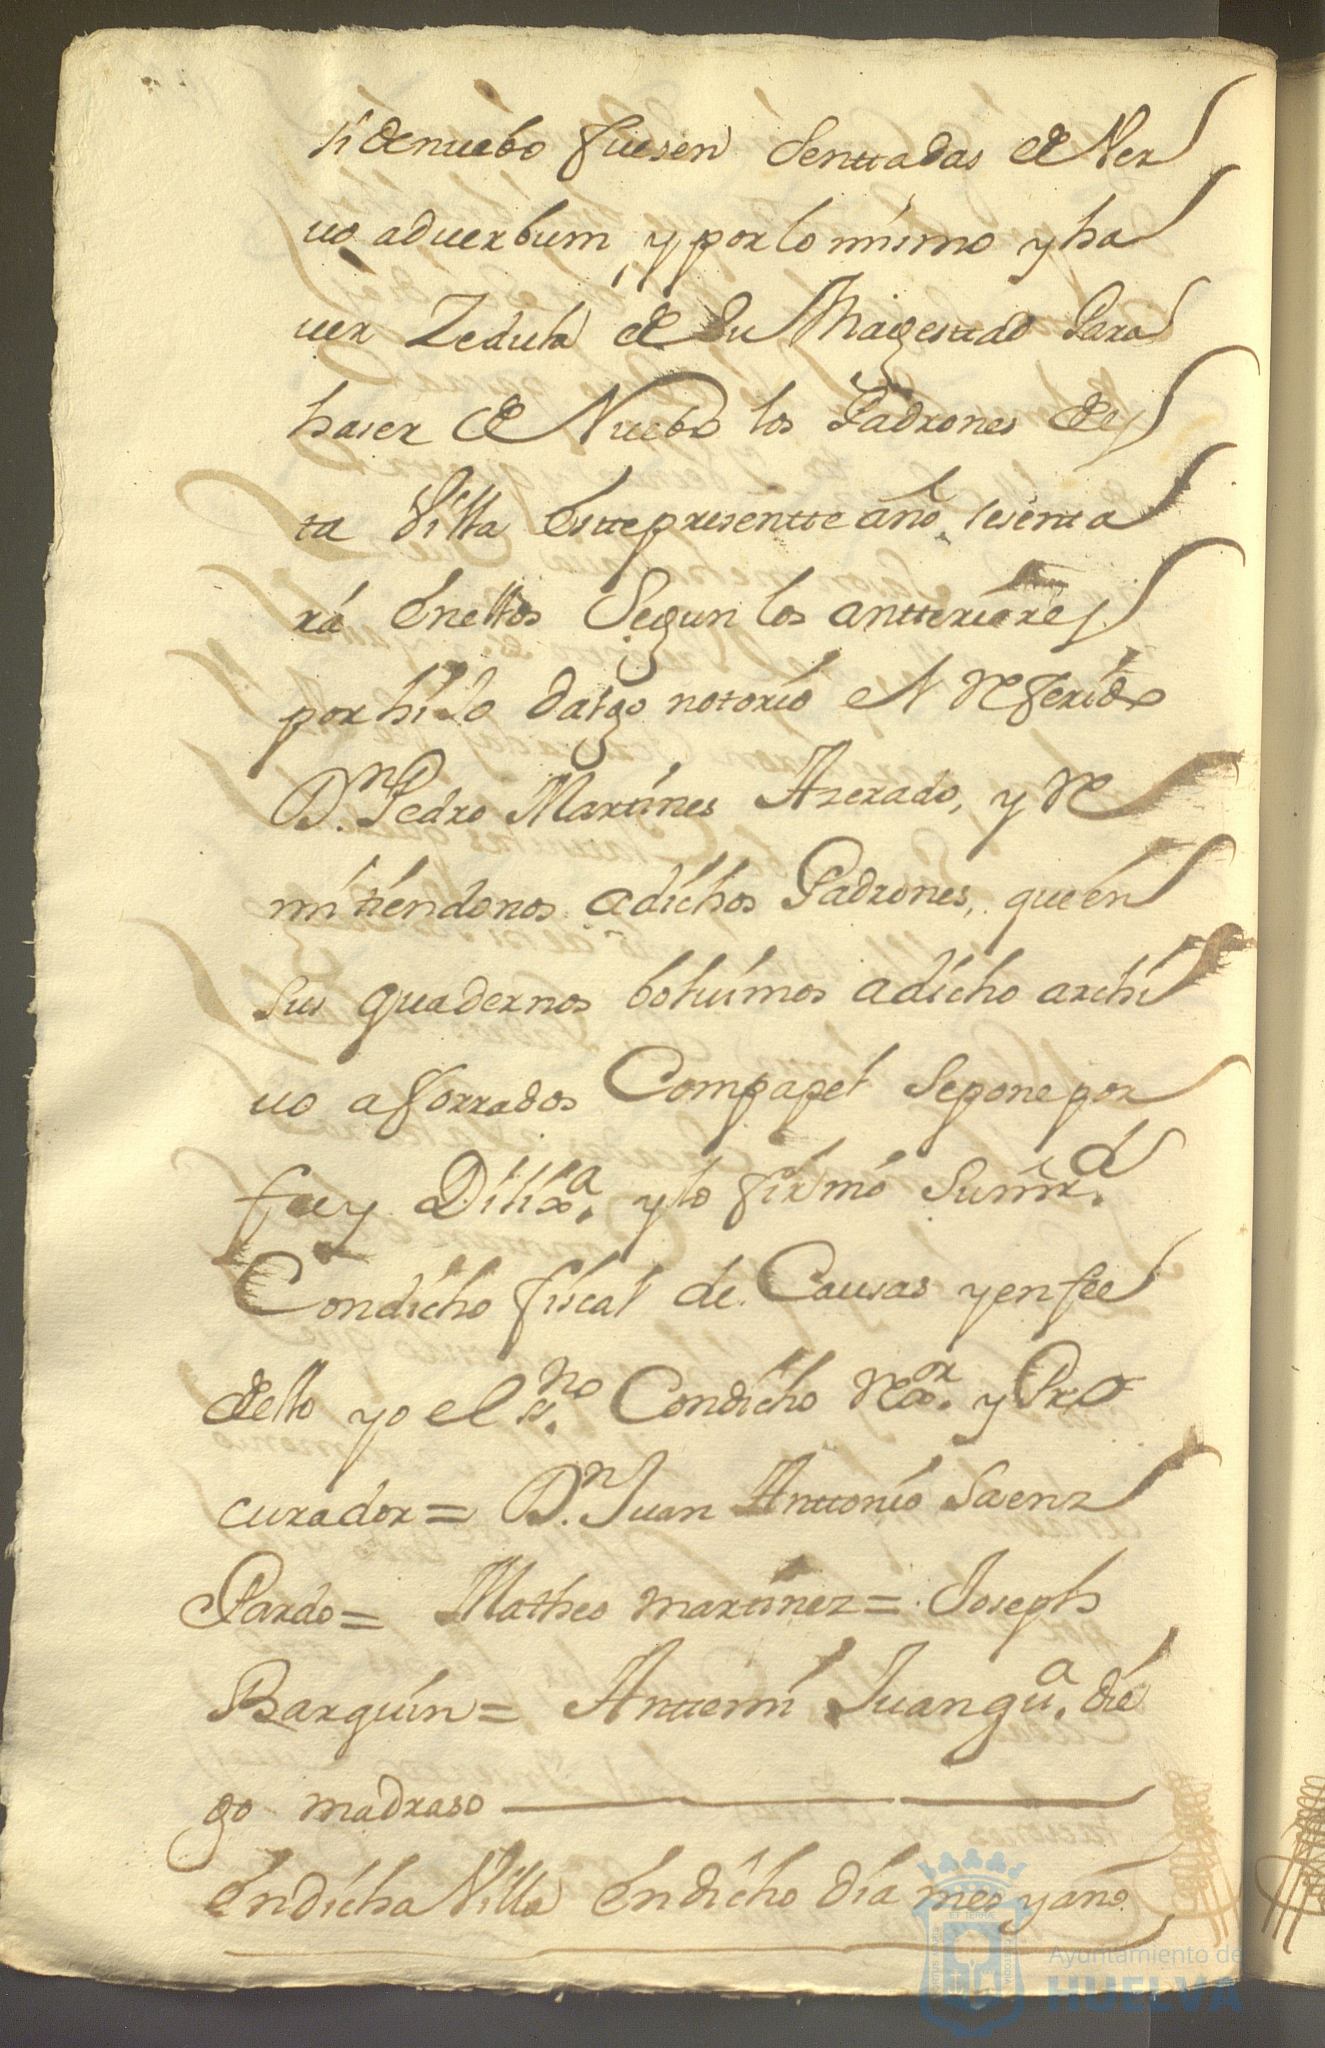 si de nuebo fuesen Senttadas de Ver
vo aduerbum, y por lo mismo y ha
uer Zedula de Su Magestad Para
haser de Nuebo los Padrones de es
ta Villa Estte presentte año, se senta
rá En ellos Segun los antteriores
por hijo dalgo notorio el Referido
Dn. Pedro Martines Azerado, y Re
mitiendonos a dichos Padrones, que en
sus quadernos boluimos a dicho archi
uo aforrados Com papel Se pone por
fee y Dilixa. y lo firmó Su mrd.
Con dicho fiscal de Causas y en fee
dello yo el sno. Con dicho Rexor. y Pro
curador = Dn. Juan Anttonio Saenz
Pardo = Matheo Martinez = Joseph
Barquin = Antte mi Juan gua. die
go madraso
En dicha Villa En dicho dia mes y año
Ayuntamiento de
HUELVA